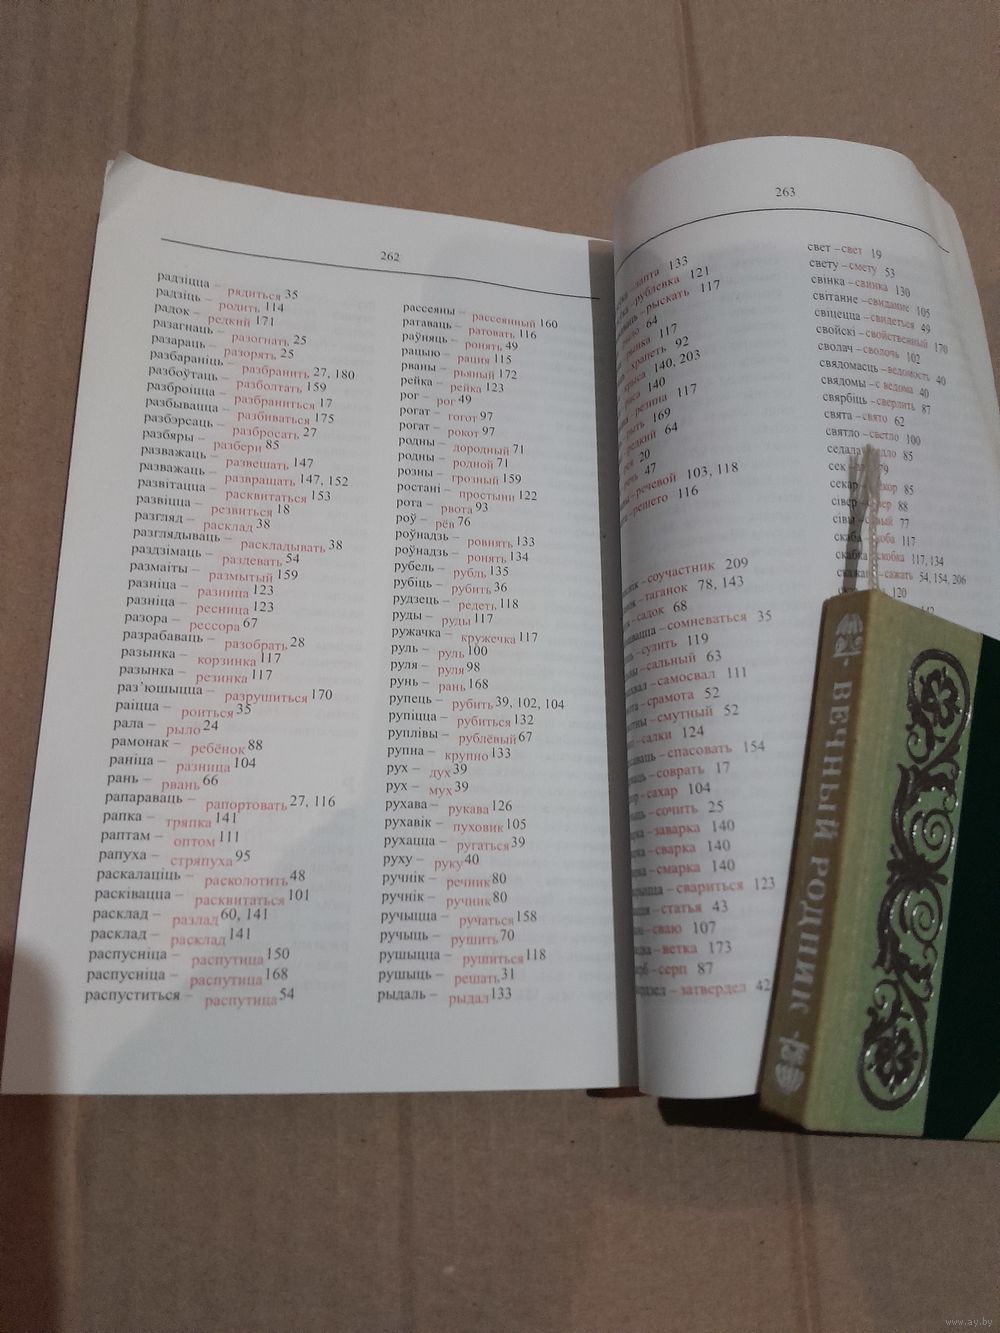 262
радзіцца – рядиться 35
радзіць – родить 114
радок – редкий 171
разагнаць – разогнать 25
разараць – разорять 25
разбараніць – разбранить 27, 180
разбоўтаць – разболтать 159
разброіцца – разбраниться 17
разбывацца – разбиваться 175
разбэрсаець – разбросать 27
разбяры – разбери 85
разважаць – развешать 147
разважаць – развращать 147, 152
развітацца – расквитаться 153
развіцца – резвиться 18
разгляд – расклад 38
разглядываць – раскладывать 38
раздзімаць – раздевать 54
размаіты – размытый 159
разніца – разница 123
разніца – ресница 123
разора – рессора 67
разрабаваць – разобрать 28
разынка – корзинка 117
разынка – резинка 117
раз’юшыцца – разрушиться 170
раіцца – роиться 35
рала – рыло 24
рамонак – ребёнок 88
раніца – разница 104
рань – рвань 66
рапараваць – рапортовать 27, 116
рапка – тряпка 141
раптам – оптом 111
рапуха – стряпуха 95
раскалаціць – расколотить 48
расківацца – расквитаться 101
расклад – разлад 60, 141
расклад – расклад 141
распусніца – распутица 150
распусніца – распутица 168
распуститься – распутица 54
рассеяны – рассеянный 160
ратаваць – ратовать 116
раўняць – ронять 49
рацыю – рация 115
рваны – рьяный 172
рейка – рейка 123
рог – рог 49
рогат – гогот 97
рогат – рокот 97
родны – дородный 71
родны – родной 71
розны – грозный 159
ростані – простыни 122
рота – рвота 93
роў – рёв 76
роўнадзь – ровнять 133
роўнадзь – ронять 134
рубель – рубль 135
рубіць – рубить 36
рудзець – редеть 118
руды – руды 117
ружачка – кружечка 117
руль – руль 100
руля – руля 98
рунь – рань 168
рупець – рубить 39, 102, 104
рупіцца – рубиться 132
руплівы – рублёвый 67
рупна – крупно 133
рух – дух 39
рух – мух 39
рухава – рукава 126
рухавік – пуховик 105
рухацца – ругаться 39
руху – руку 40
ручнік – речник 80
ручнік – ручник 80
ручыцца – ручаться 158
ручыць – рушить 70
рушыцца – рушиться 118
рушыць – решать 31
рыдаль – рыдал 133
263
лапта 133
рубленка 121
рыскать 117
64
117
храпеть 92
крыса 140, 203
140
резина 117
169
редкий 64
20
47
речевой 103, 118
решето 116
соучастник 209
таганок 78, 143
садок 68
сомневаться 35
сулить 119
сальный 63
самосвал 111
срамота 52
смутный 52
салки 124
спасовать 154
соврать 17
сахар 104
сочить 25
заварка 140
сварка 140
смарка 140
свариться 123
статья 43
сваю 107
ветка 173
серп 87
затвердел 42
свет – свет 19
свету – смету 53
свінка – свинка 130
світанне – свидание 105
свіцецца – свидеться 49
свойскі – свойственный 170
сволач – сволочь 102
свядомасць – ведомость 40
свядомы – с ведома 40
свярбіць – сверлить 87
свята – свято 62
святло – светло 100
седала 85
сек
секар 85
сівер 88
сівы 77
скаба 117
скабка – скобка 117, 134
сажать 54, 154, 206
120
142
ВЕЧНЫЙ РОДНИК
www.ay.by